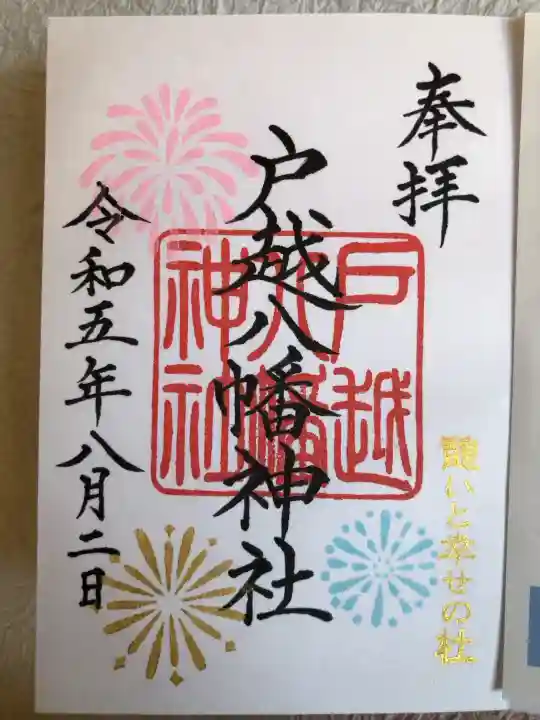 奉拝
戸越八幡神社
戸越八幡神社
願いと幸せの杜
令和五年八月二日